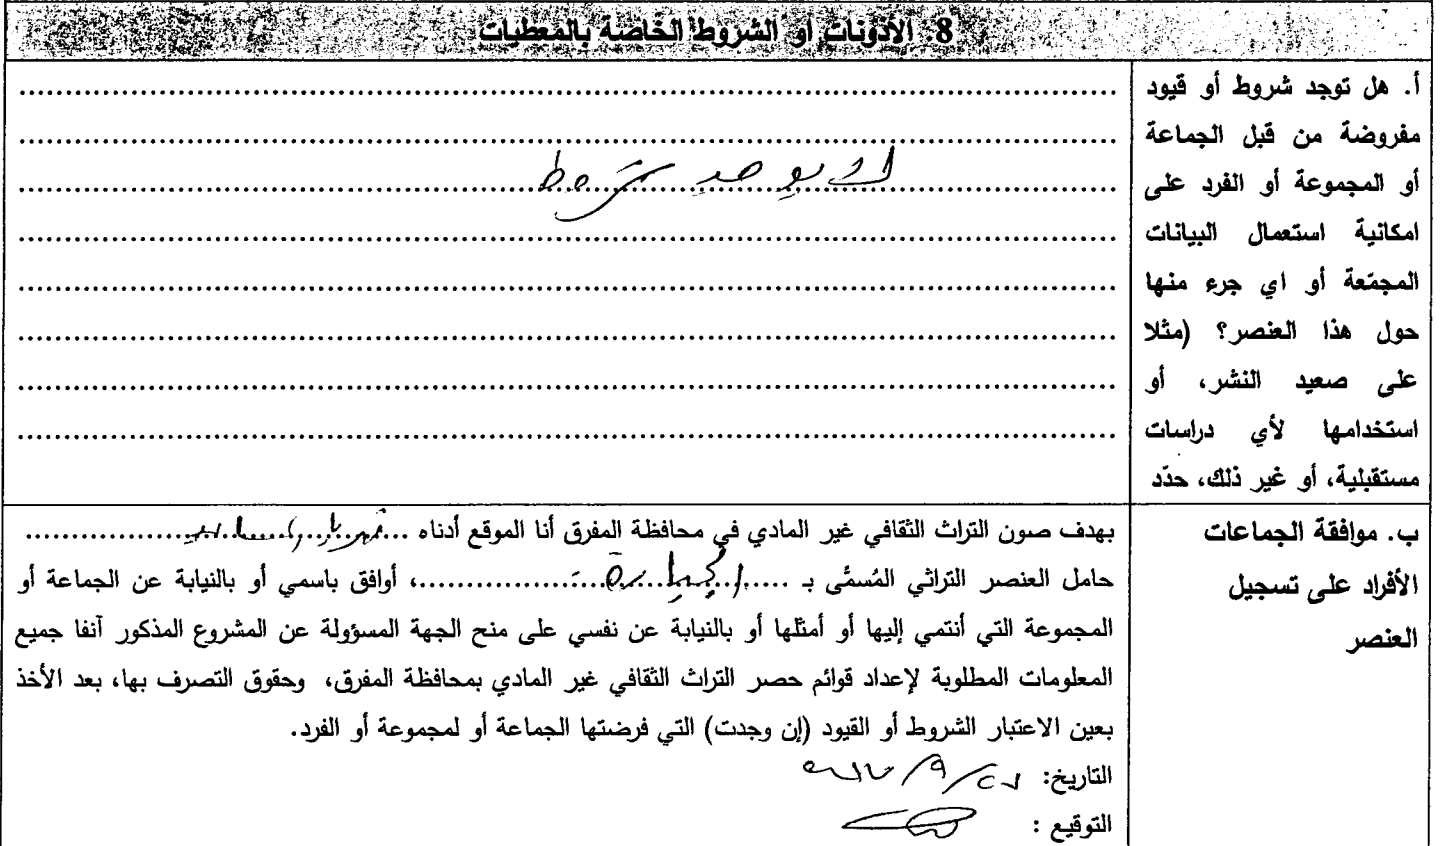 8. الأذونات او الشروط الخاصة بالمعطيات
أ. هل توجد شروط أو قيود
مفروضة من قبل الجماعة
أو المجموعة أو الفرد على
امكانية استعمال البيانات
المجمّعة أو اي جرء منها
حول هذا العنصر؟ (مثلا
على صعيد النشر، أو
استخدامها لأي دراسات
مستقبلية، أو غير ذلك، حدّد
لا يوجد شروط
ب. موافقة الجماعات
الأفراد على تسجيل
العنصر
بهدف صون التراث الثقافي غير المادي في محافظة المفرق أنا الموقع أدناه
حامل العنصر التراثي المُسمَّى بـ ، أوافق باسمي أو بالنيابة عن الجماعة أو
المجموعة التي أنتمي إليها أو أمثلها أو بالنيابة عن نفسي على منح الجهة المسؤولة عن المشروع المذكور آنفا جميع
المعلومات المطلوبة لإعداد قوائم حصر التراث الثقافي غير المادي بمحافظة المفرق، وحقوق التصرف بها، بعد الأخذ
بعين الاعتبار الشروط أو القيود (إن وجدت) التي فرضتها الجماعة أو لمجموعة أو الفرد.
التاريخ:
التوقيع :